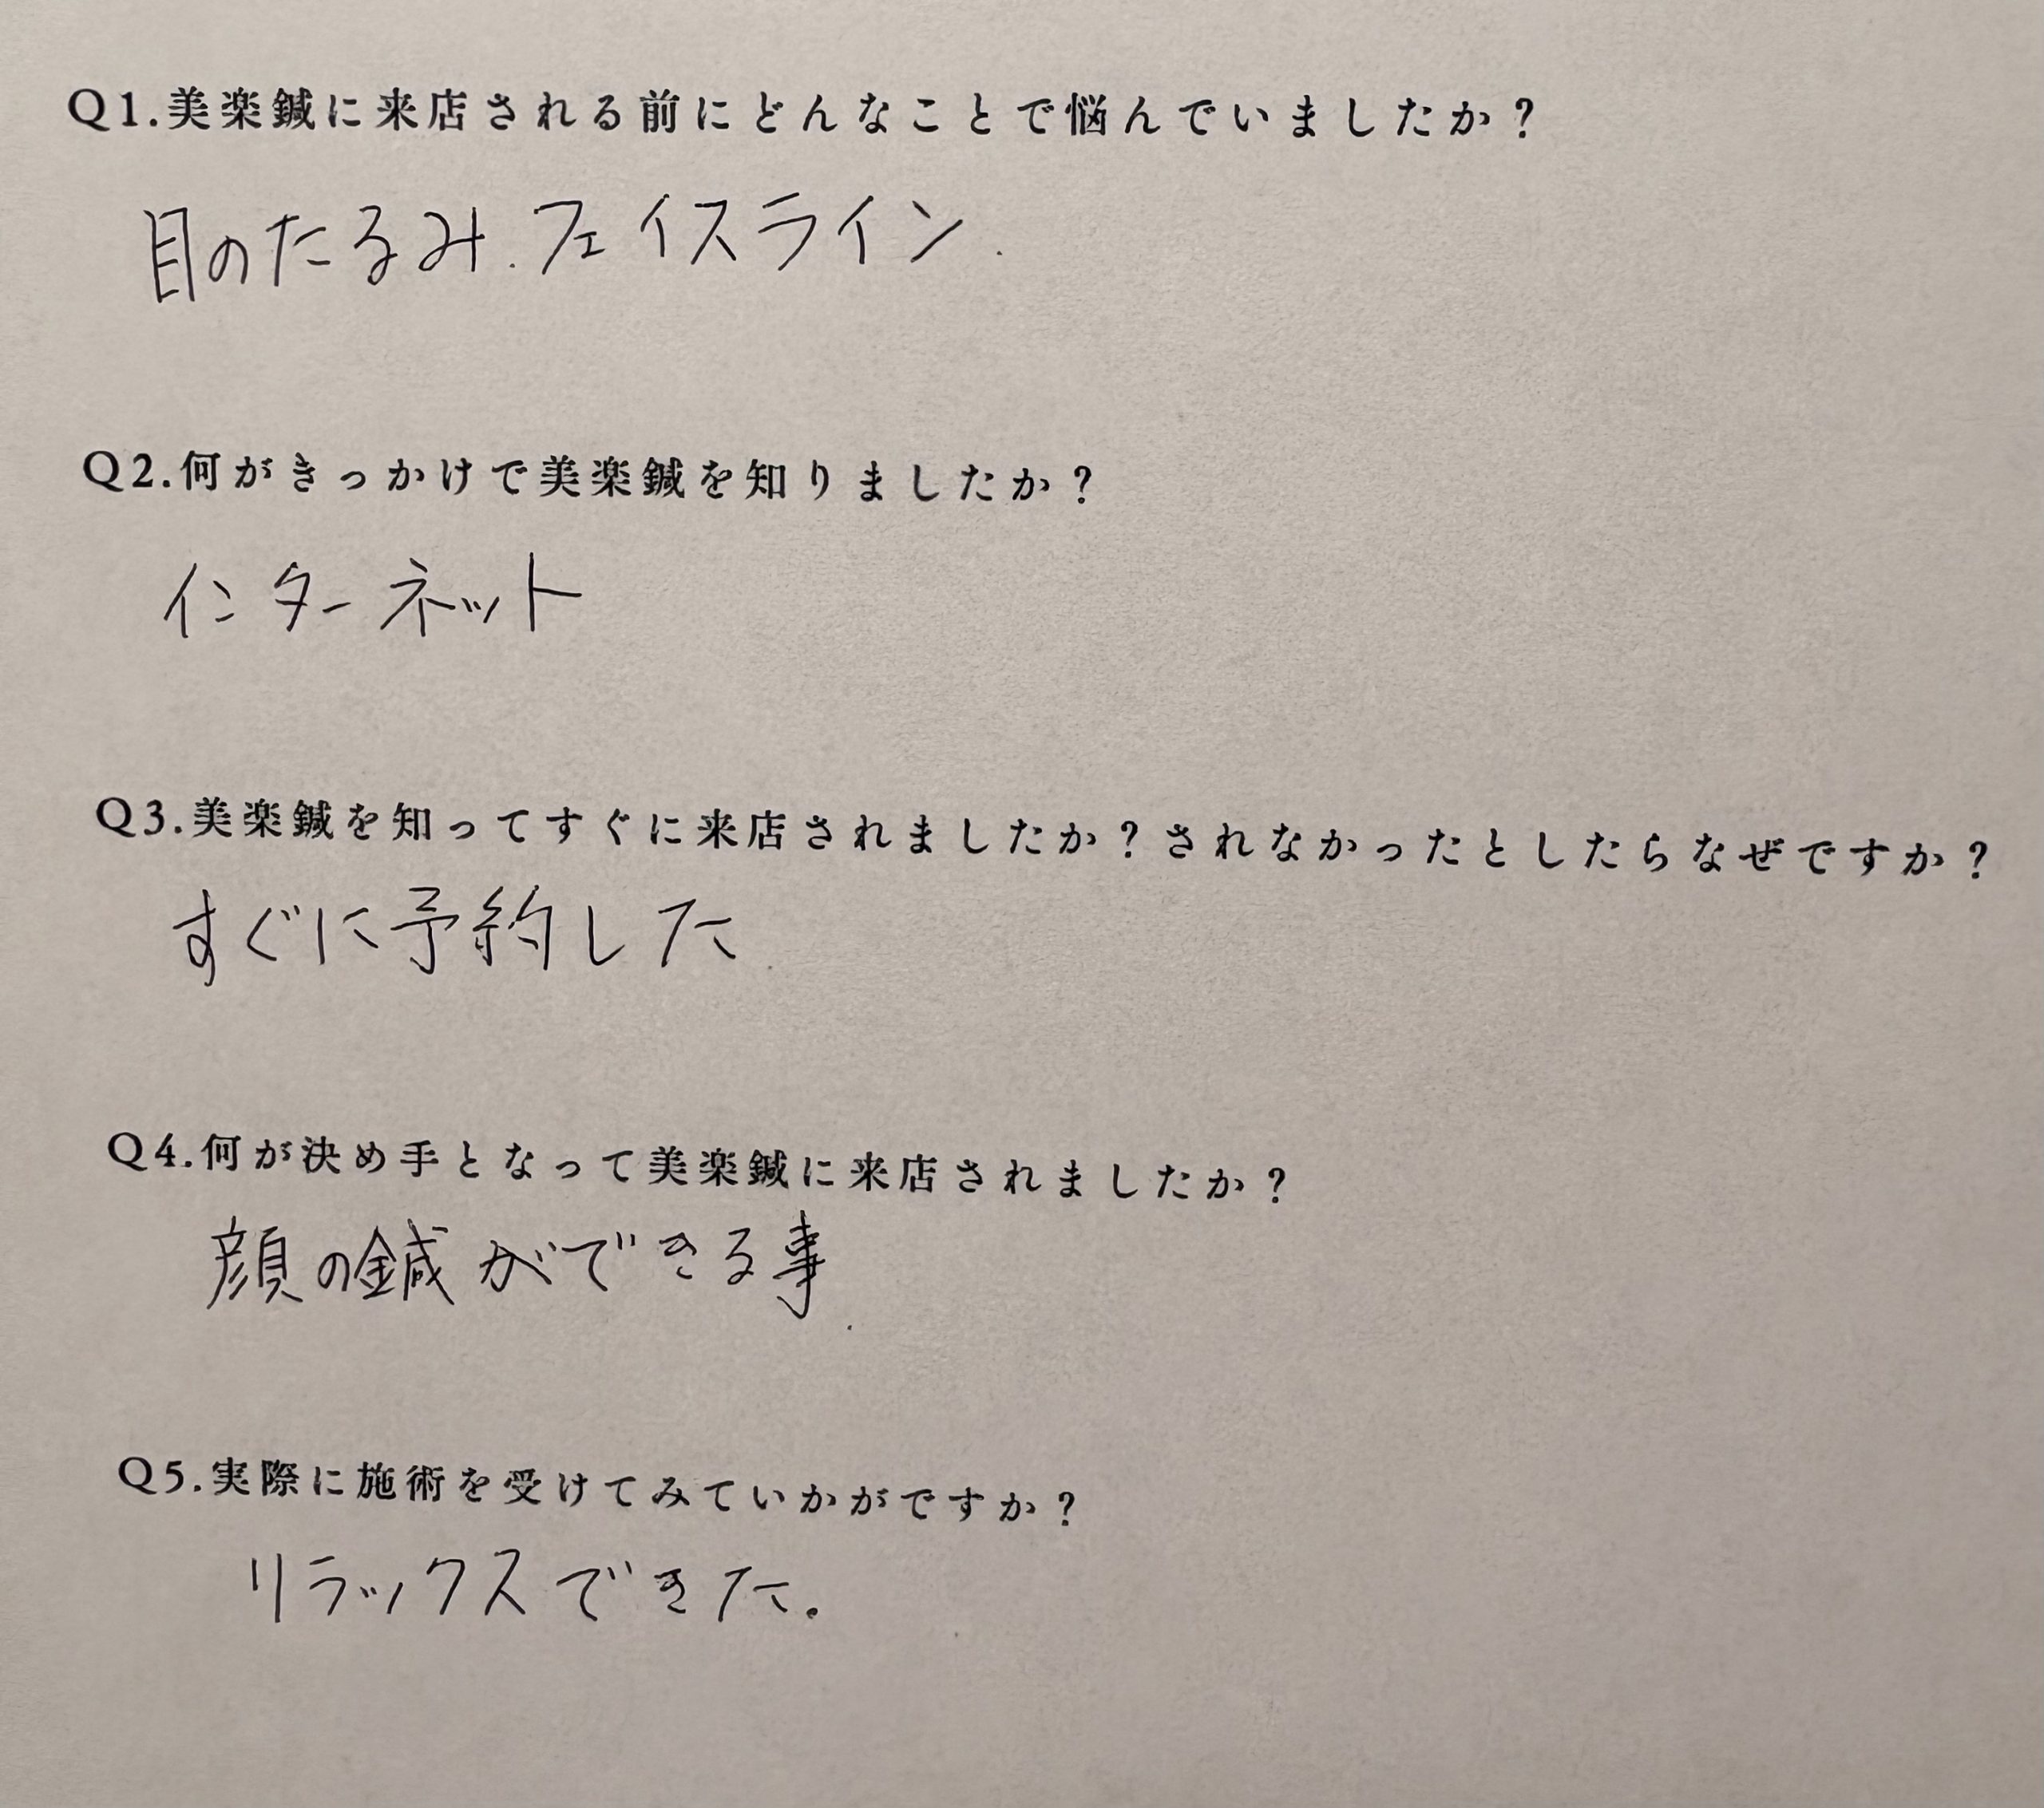 Q1.美楽鍼に来店される前にどんなことで悩んでいましたか?
目のたるみ.フェイスライン.
Q2.何がきっかけで美楽鍼を知りましたか?
インターネット
Q3.美楽鍼を知ってすぐに来店されましたか?されなかったとしたらなぜですか?
すぐに予約した
Q4.何が決め手となって美楽鍼に来店されましたか?
顔の鍼ができる事.
Q5.実際に施術を受けてみていかがですか?
リラックスできた.